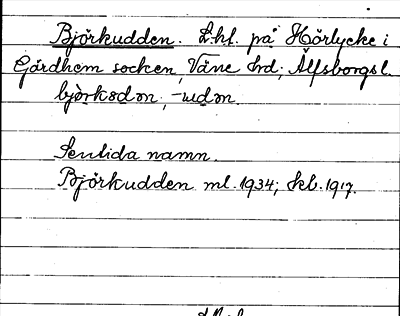 Björkudden. Lht. på Hörlycke i
Gärdhem socken, Väne hd; Älfsborgs l.
björkɷdən, -udən.
Sentida namn.
Björkudden ml. 1934; Skb. 1917.